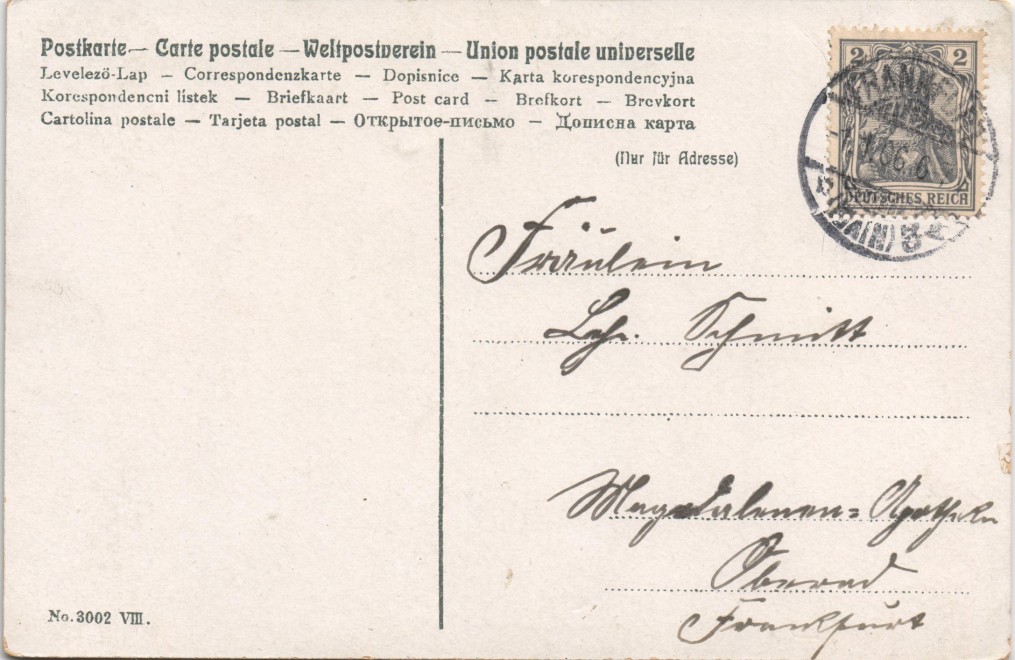 Postkarte — Carte postale — Weltpostverein — Union postale universelle
Levelező-Lap — Correspondenzkarte — Dopisnice — Karta korespondencyjna
Korespondencni listek — Briefkaart — Post card — Brefkort — Brevkort
Cartolina postale — Tarjeta postal — Открытое-письмо — Дописна карта
(Nur für Adresse)
2 2
DEUTSCHES REICH
(MAIN)
Fräulein
Schmitt
Magdalenen=Apotheke
Oberrad
Frankfurt
No. 3002 VIII.